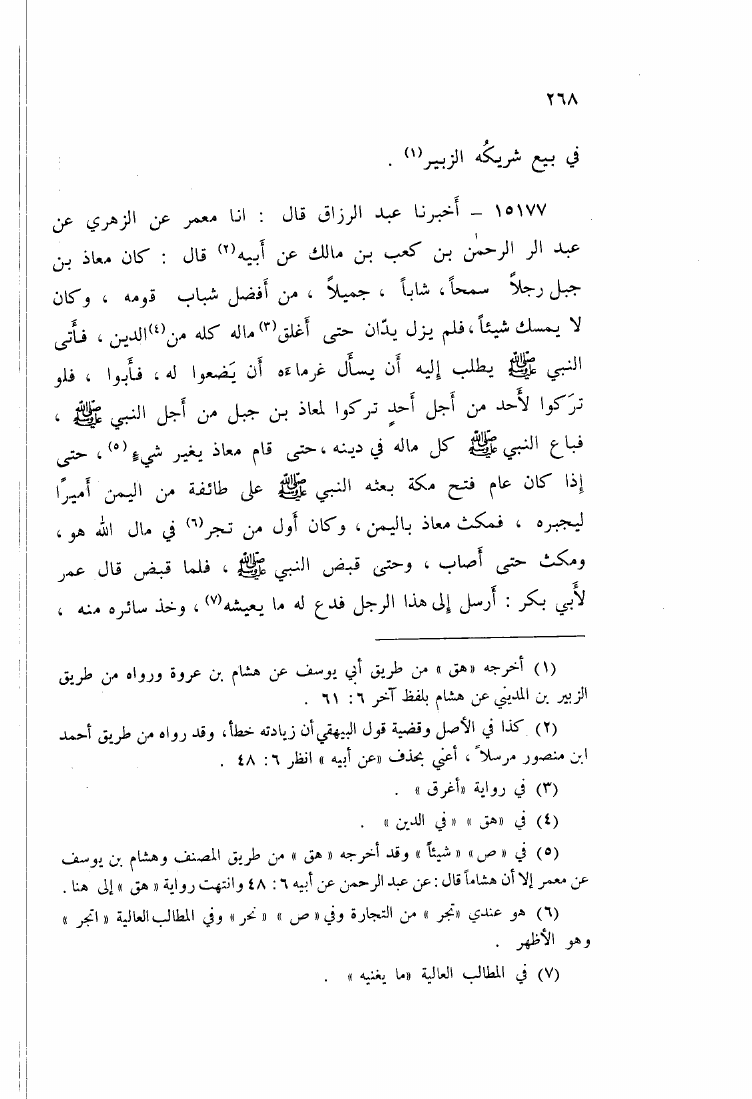 ٢٦٨
في بيع شريكُه الزبير(١) .
١٥١٧٧ – أَخبرنا عبد الرزاق قال : انا معمر عن الزهري عن
عبد الر الرحمٰن بن كعب بن مالك عن أَبيه(٢) قال : كان معاذ بن
جبل رجلاً سمحاً ، شاباً ، جميلاً ، من أَفضل شباب قومه ، وكان
لا يمسك شيئاً ، فلم يزل يدّان حتى أَغلق(٣) ماله كله من(٤) الدين ، فأَتى
النبي ﷺ يطلب إليه أَن يسأَل غرماءَه أَن يَضعوا له ، فأَبوا ، فلو
ترَكوا لأَحد من أَجل أَحدٍ تركوا لمعاذ بن جبل من أَجل النبي ﷺ ،
فباع النبي ﷺ كل ماله في دينه ، حتى قام معاذ يغير شيءٍ(٥) ، حتى
إذا كان عام فتح مكة بعثه النبي ﷺ على طائفة من اليمن أَميرًا
ليجبره ، فمكث معاذ باليمن ، وكان أَول من تجر(٦) في مال الله هو ،
ومكث حتى أَصاب ، وحتى قبض النبي ﷺ ، فلما قبض قال عمر
لأَبي بكر : أَرسل إلى هذا الرجل فدع له ما يعيشه(٧) ، وخذ سائره منه ،
(١) أخرجه «هق» من طريق أبي يوسف عن هشام بن عروة ورواه من طريق
الزبير بن المديني عن هشام بلفظ آخر ٦ : ٦١ .
(٢) كذا في الأصل وقضية قول البيهقي أن زيادته خطأ ، وقد رواه من طريق أحمد
ابن منصور مرسلاً ، أعني بحذف «عن أبيه» انظر ٦ : ٤٨ .
(٣) في رواية «أغرق» .
(٤) في «هق» «في الدين» .
(٥) في «ص» «شيئاً» وقد أخرجه «هق» من طريق المصنف وهشام بن يوسف
عن معمر إلا أن هشاماً قال : عن عبد الرحمن عن أبيه ٦ : ٤٨ وانتهت رواية «هق» إلى هنا .
(٦) هو عندي «تجر» من التجارة وفي «ص» «نحر» وفي المطالب العالية «اتجر»
وهو الأظهر .
(٧) في المطالب العالية «ما يغنيه» .